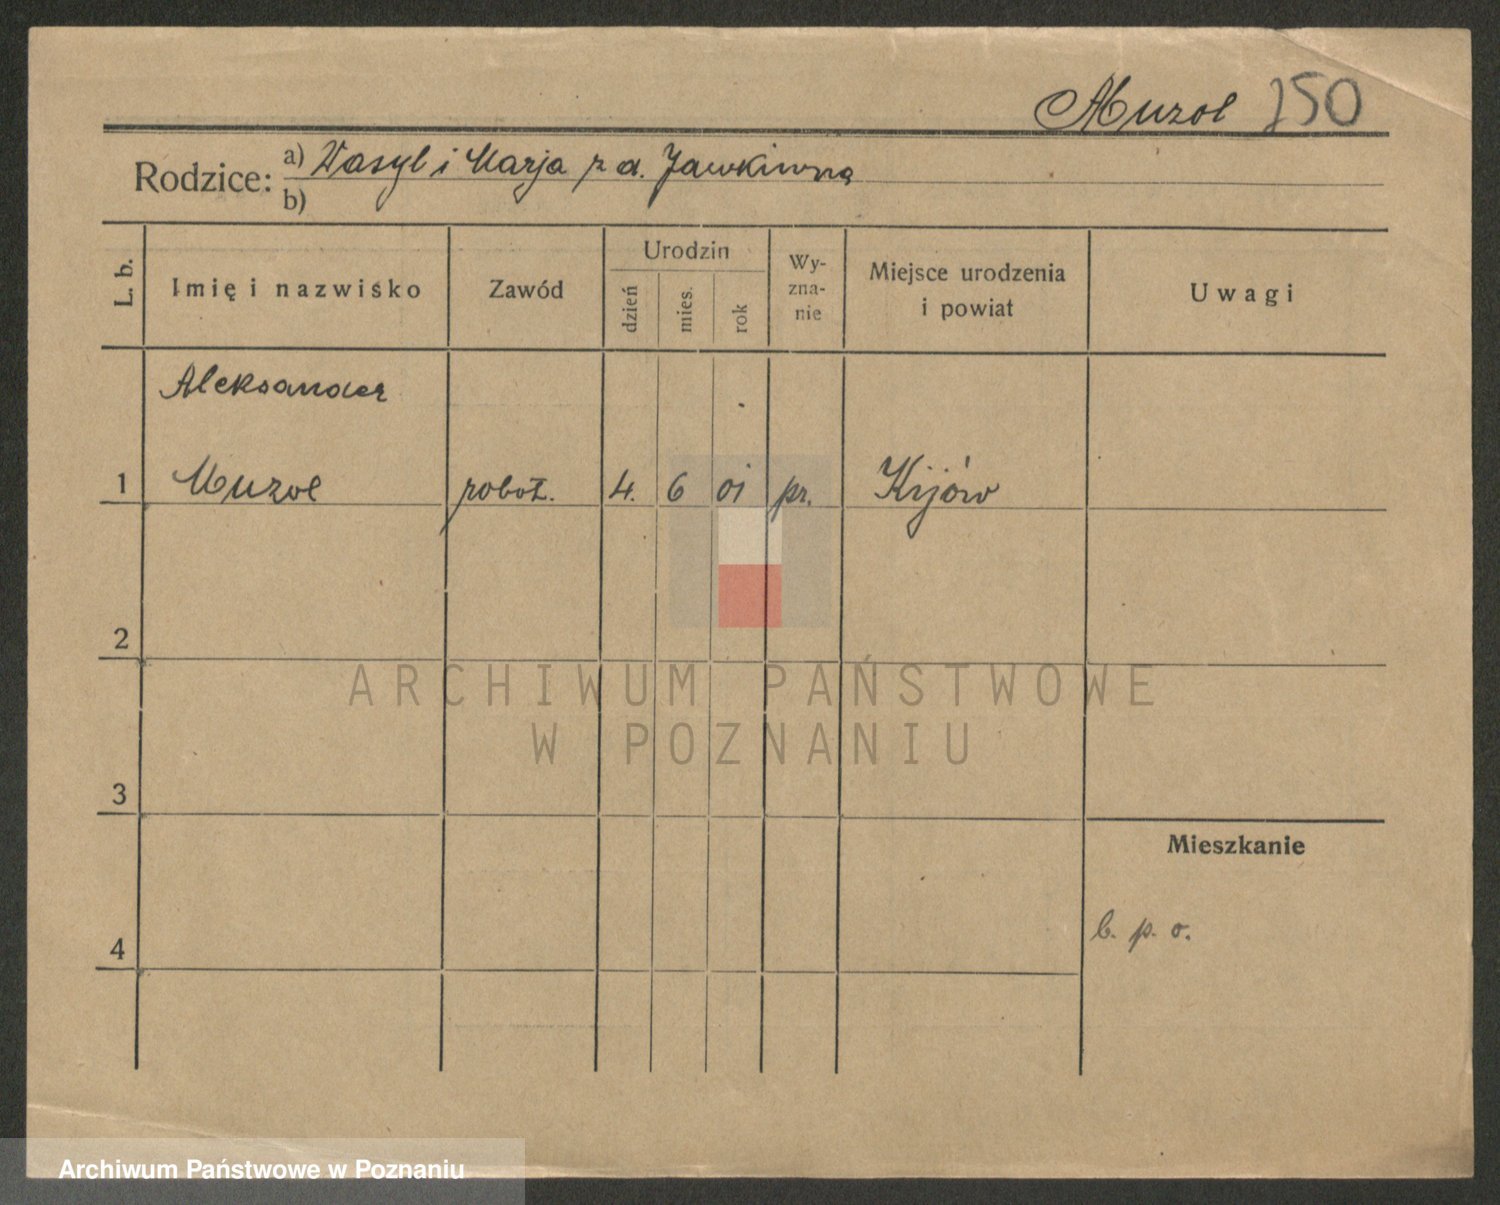 Muzol 150
Rodzice: a) Wasyl i Marja z d. Jawkiwna
b)
L. b. Imię i nazwisko Zawód Urodzin dzień mies. rok Wy-zna-nie Miejsce urodzenia i powiat Uwagi
Aleksander
1 Muzol robot. 4. 6 01 pr. Kijów
2
3
Mieszkanie
4 b. p. o.
ARCHIWUM PAŃSTWOWE
W POZNANIU
Archiwum Państwowe w Poznaniu